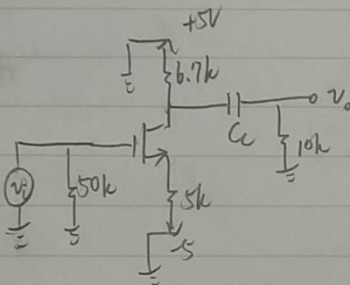 +5V
6.7k
Vo
Cc
10k
Vi
50k
5k
-5